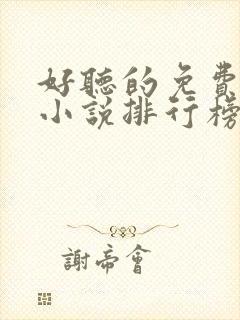 好聽的免費
小說排行榜
謝帝會